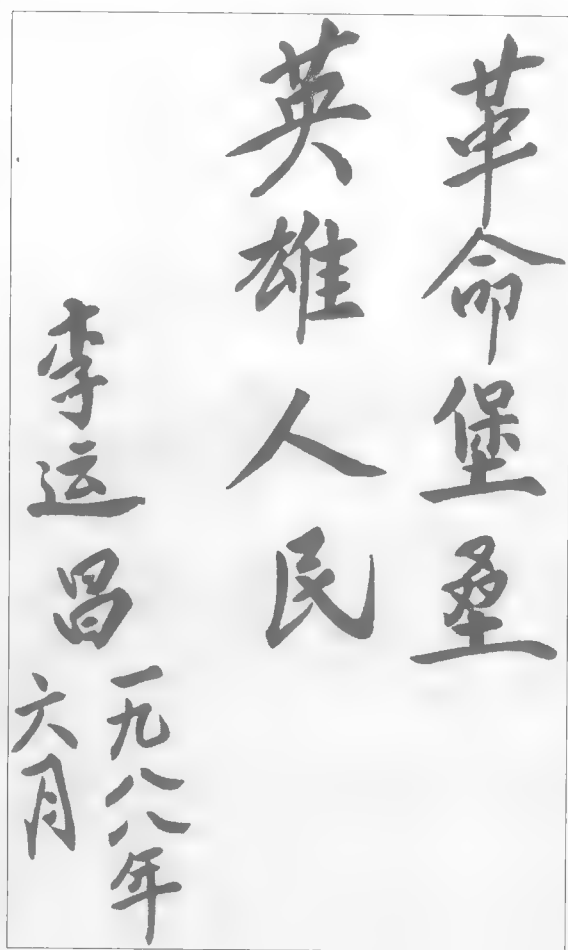 革命堡垒
英雄人民
李运昌
一九八八年
六月